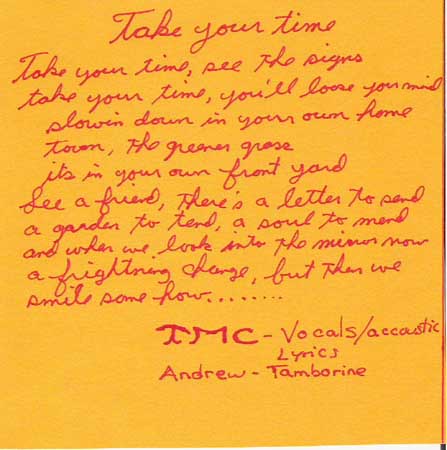 Take your time
Take your time, see the signs
take your time, you'll loose your mind
slowin down in your own home
town, the greener grass
its in your own front yard
See a friend, there's a letter to send
a garden to tend, a soul to mend
and when we look into the mirror now
a frightning change, but then we
smile some how........
TMC - Vocals/accoustic
Lyrics
Andrew - Tamborine